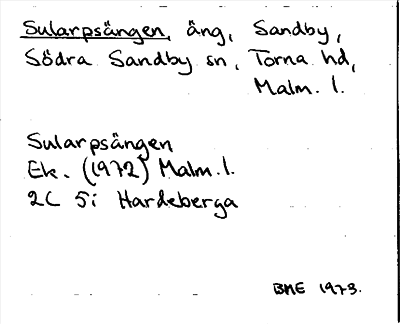 Sularpsängen, äng, Sandby,
Södra Sandby sn, Torna hd,
Malm. l.
Sularpsängen
Ek. (1972) Malm. l.
2C 5i Hardeberga
BME 1973.